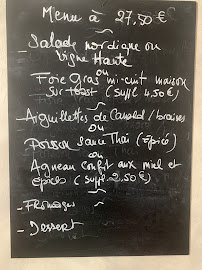 Menu à 27,50 €
- Salade nordique ou
Vigne Haute
ou
Foie Gras mi-cuit maison
sur toast (suppl 4,50€)
- Aiguillettes de Canard
ou
Poisson sauce Thaï (épicé)
ou
Agneau confit aux miel et
épices (suppl 2.50€)
- Fromages
- Dessert